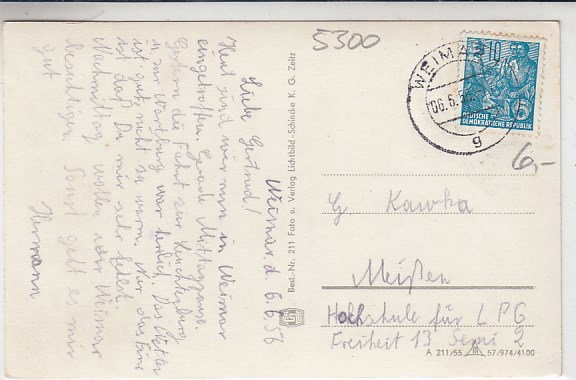 Weimar, d. 6.6.56
Liebe Gertrud!
Heut sind wir nun in Weimar
eingetroffen. Gerade Mittagspause.
Gestern die Fahrt zur Leuchtenburg
u. zur Wartburg war herrlich. Das Wetter
ist gut, nicht zu warm. Nur das Eine
ist das! Du mir sehr fehlst.
Nachmittag wollen wir Weimar
besichtigen. Sonst geht es mir
gut
Hermann
Best.-Nr. 211 Foto u. Verlag Lichtbild-Schincke K. G. Zeitz
5300
WEIMAR
06.6.
g
10
5
DEUTSCHE
DEMOKRATISCHE REPUBLIK
6,-
G Kawka
Meißen
Hochschule für LPG
Freiheit 13 Semi 2
A 211/55 57/974/4100